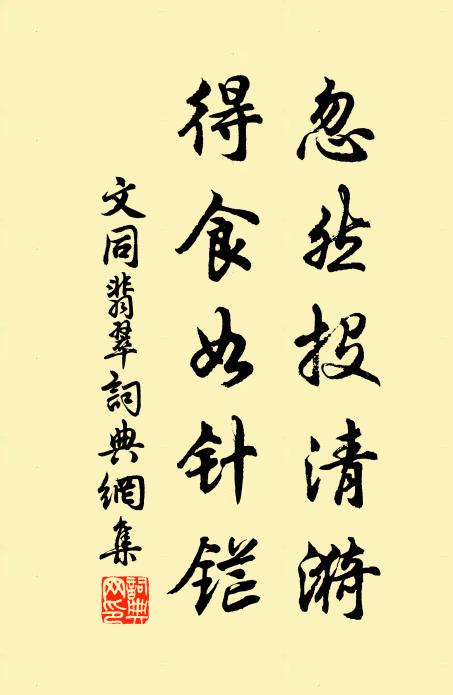 忽然投清漪
得食如针铓
文同翡翠詞典網集
詞典
网印